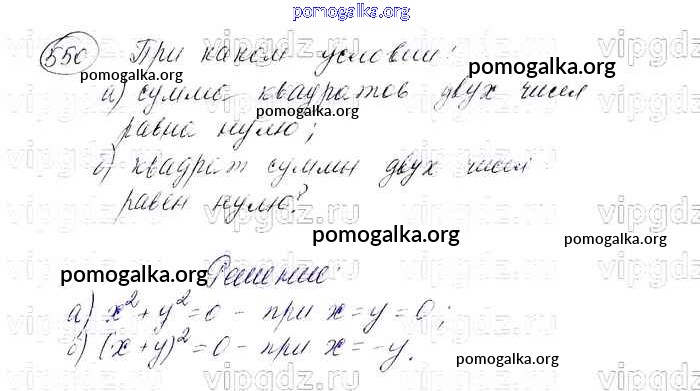 pomogalka.org
550 При каком условии:
pomogalka.org pomogalka.org
а) сумма квадратов двух чисел
pomogalka.org
равна нулю;
б) квадрат суммы двух чисел
равен нулю?
pomogalka.org pomogalka.org
pomogalka.org Решение:
а) x² + y² = 0 – при x = y = 0;
б) (x + y)² = 0 – при x = –y.
pomogalka.org pomogalka.org